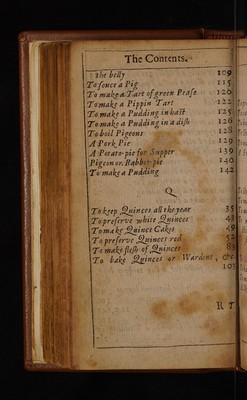 The Contents.
the belly 109
To souce a Pig 115
To make a Tart of green Pease 120
To make a Pippin Tart 122
To make a Pudding in hast 125
To make a Pudding in a dish 126
To boil Pigeons 128
A Pork Pie 129
A Potato-pie for Supper 139
Pigeon or Rabbit-pie 140
To make a Pudding 142
Q
To keep Quinces all the year 35
To preserve white Quinces 48
To make Quince Cakes 49
To preserve Quinces red 52
To make flesh of Quinces 88
To bake Quinces or Wardens, &c.
103